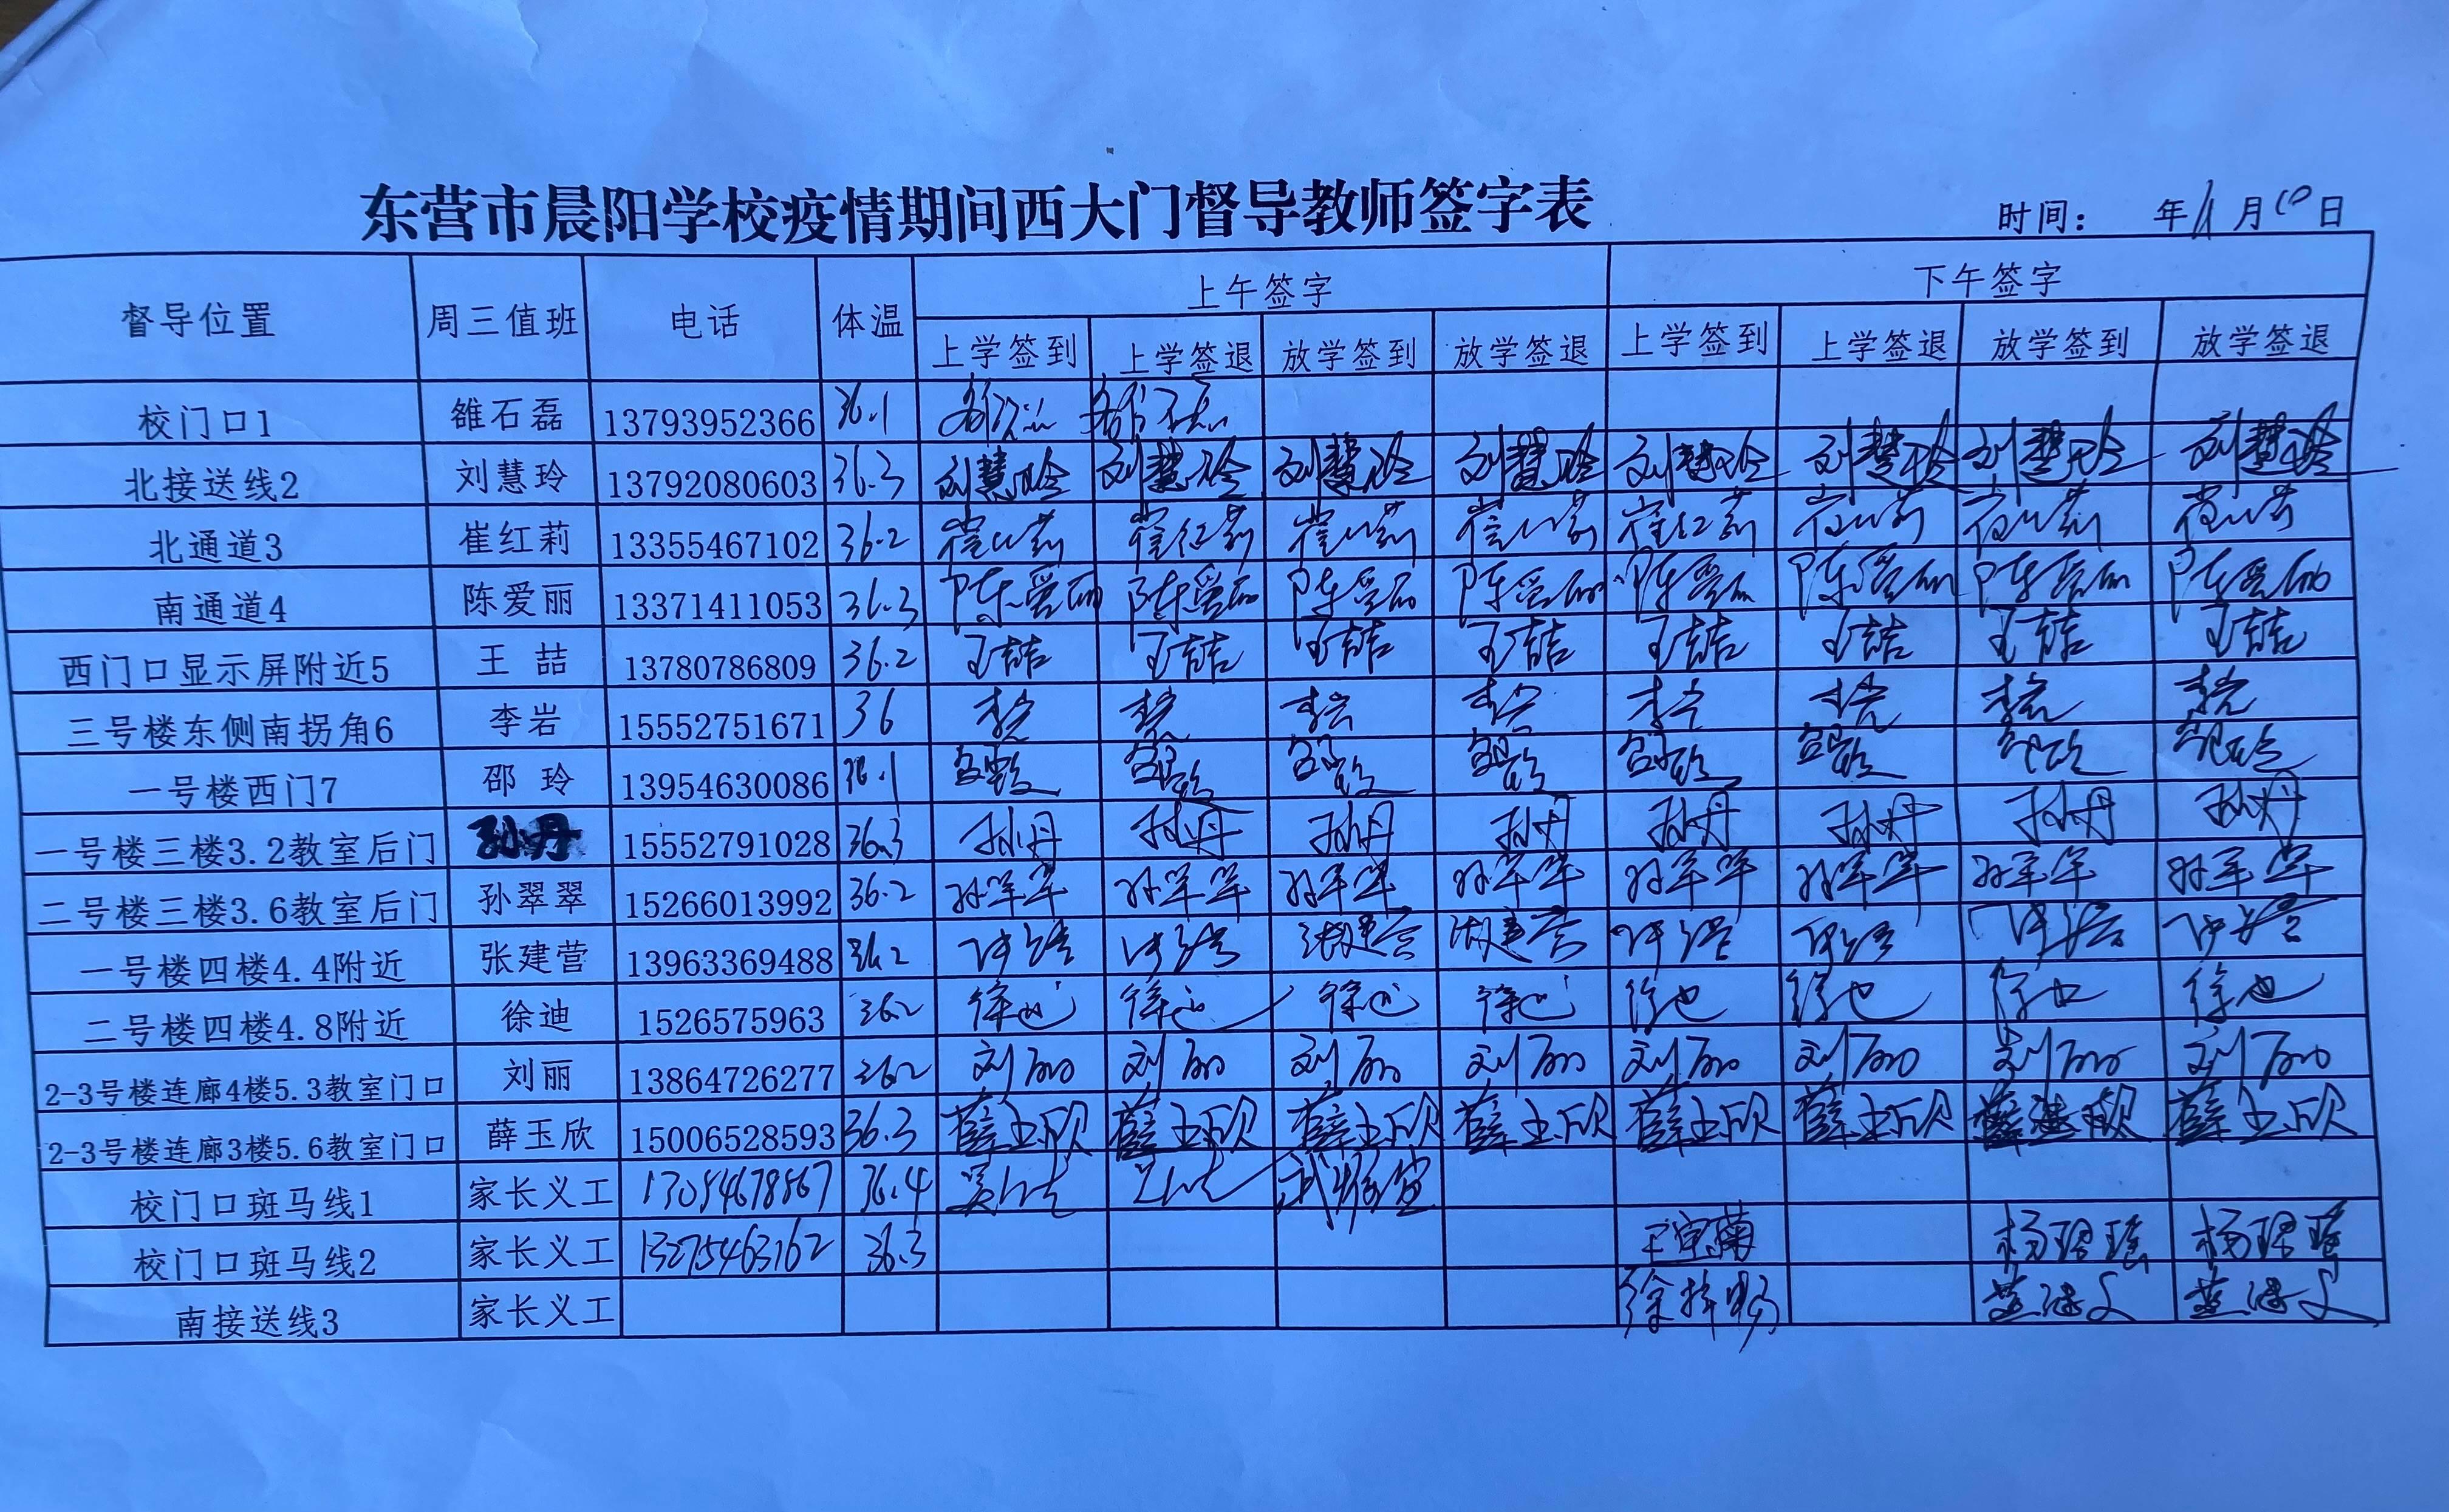 东营市晨阳学校疫情期间西大门督导教师签字表
时间： 年11月10日
督导位置 周三值班 电话 体温 上午签字 下午签字
上学签到 上学签退 放学签到 放学签退 上学签到 上学签退 放学签到 放学签退
校门口1 雒石磊 13793952366 36.1
北接送线2 刘慧玲 13792080603 36.3 刘慧玲 刘慧玲 刘慧玲 刘慧玲 刘慧玲 刘慧玲 刘慧玲 刘慧玲
北通道3 崔红莉 13355467102 36.2 崔红莉 崔红莉 崔红莉 崔红莉 崔红莉 崔红莉 崔红莉 崔红莉
南通道4 陈爱丽 13371411053 36.3 陈爱丽 陈爱丽 陈爱丽 陈爱丽 陈爱丽 陈爱丽 陈爱丽 陈爱丽
西门口显示屏附近5 王喆 13780786809 36.2 王喆 王喆 王喆 王喆 王喆 王喆 王喆 王喆
三号楼东侧南拐角6 李岩 15552751671 36 李岩 李岩 李岩 李岩 李岩 李岩 李岩 李岩
一号楼西门7 邵玲 13954630086 36.1 邵玲 邵玲 邵玲 邵玲 邵玲 邵玲 邵玲 邵玲
一号楼三楼3.2教室后门 孙丹 15552791028 36.3 孙丹 孙丹 孙丹 孙丹 孙丹 孙丹 孙丹 孙丹
二号楼三楼3.6教室后门 孙翠翠 15266013992 36.2 孙翠翠 孙翠翠 孙翠翠 孙翠翠 孙翠翠 孙翠翠 孙翠翠 孙翠翠
一号楼四楼4.4附近 张建营 13963369488 36.2 张建营 张建营 张建营 张建营 张建营 张建营 张建营 张建营
二号楼四楼4.8附近 徐迪 1526575963 36.2 徐迪 徐迪 徐迪 徐迪 徐迪 徐迪 徐迪 徐迪
2-3号楼连廊4楼5.3教室门口 刘丽 13864726277 36.2 刘丽 刘丽 刘丽 刘丽 刘丽 刘丽 刘丽 刘丽
2-3号楼连廊3楼5.6教室门口 薛玉欣 15006528593 36.3 薛玉欣 薛玉欣 薛玉欣 薛玉欣 薛玉欣 薛玉欣 薛玉欣 薛玉欣
校门口斑马线1 家长义工 13054678567 36.4
校门口斑马线2 家长义工 13275463162 36.3
南接送线3 家长义工